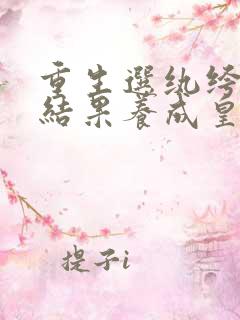 重生選紈绔
結果養成皇
提子i